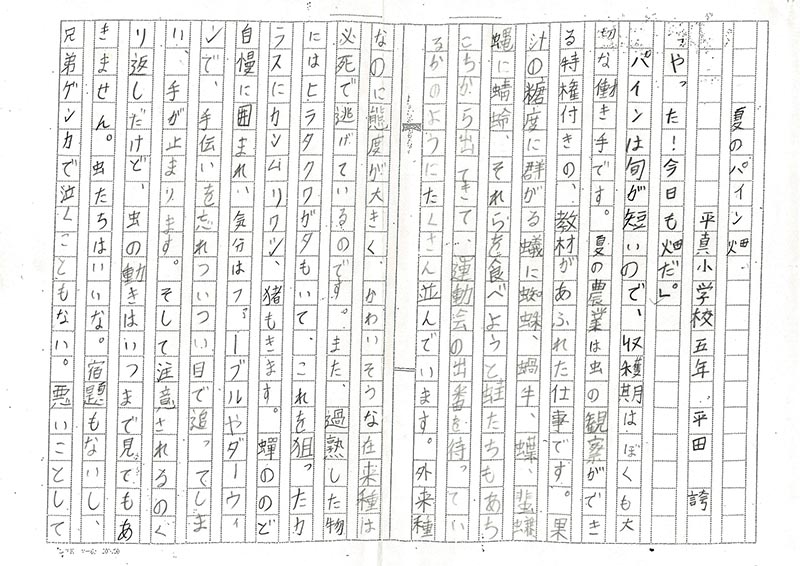 夏のパイン畑
平真小学校五年 平田 誇
「やった!今日も畑だ。」
パインは旬が短いので、収穫期はぼくも大
切な働き手です。夏の農業は虫の観察ができ
る特権付きの、教材があふれた仕事です。果
汁の糖度に群がる蟻に蜘蛛、蝸牛、蝶、蜚蠊
蝿に蜻蛉、それらを食べようと蛙たちもあち
こちから出てきて、運動会の出番を待ってい
るかのようにたくさん並んでいます。外来種
なのに態度が大きく、かわいそうな在来種は
必死で逃げているのです。また、過熟した物
にはヒラタクワガタもいて、これを狙ったカ
ラスにカンムリワシ、猪もきます。蟬ののど
自慢に囲まれ、気分はファーブルやダーウィ
ンで、手伝いを忘れついつい目で追ってしま
い、手が止まります。そして注意されるのく
り返しだけど、虫の動きはいつまで見てもあ
きません。虫たちはいいな。宿題もないし、
兄弟ゲンカで泣くこともない。悪いことして